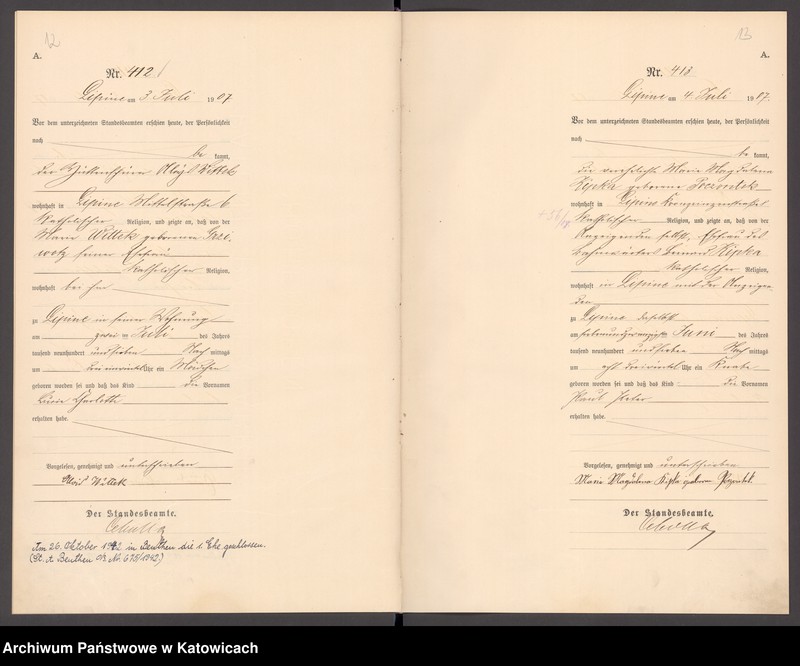 12
A.
Nr. 412
Lipine am 3 Juli 1907
Vor dem unterzeichneten Standesbeamten erschien heute, der Persönlichkeit
nach
be kannt,
der Alois Wittek
wohnhaft in Lipine Mittelstraße 6
katholischer Religion, und zeigte an, daß von der
Marie Wittek geborenen
seiner Ehefrau
katholischer Religion,
wohnhaft bei ihm
zu Lipine in seiner Wohnung
am zwei ten Juli des Jahres
tausend neunhundert und sieben Nach mittags
um Uhr ein Mädchen
geboren worden sei und daß das Kind die Vornamen
Charlotte
erhalten habe.
Vorgelesen, genehmigt und unterschrieben
Alois Wittek
Der Standesbeamte.
Am 26. Oktober 1942 in Beuthen die 1. Ehe geschlossen.
(St. A. Beuthen O/S Nr. 675/1942)
13
A.
Nr. 413
Lipine am 4 Juli 1907.
Vor dem unterzeichneten Standesbeamten erschien heute, der Persönlichkeit
nach
be kannt,
die verehelichte Marie Magdalena
Kipka geborene
wohnhaft in Lipine
katholischer Religion, und zeigte an, daß von der
Anzeigenden selbst, Ehefrau des
Kipka
katholischer Religion,
wohnhaft in Lipine mit der Anzeigen-
den
zu Lipine daselbst
am siebenundzwanzigsten Juni des Jahres
tausend neunhundert und sieben Nach mittags
um acht dreiviertel Uhr ein Knabe
geboren worden sei und daß das Kind die Vornamen
Paul Peter
erhalten habe.
Vorgelesen, genehmigt und unterschrieben
Marie Magdalena Kipka geborene
Der Standesbeamte.
Archiwum Państwowe w Katowicach